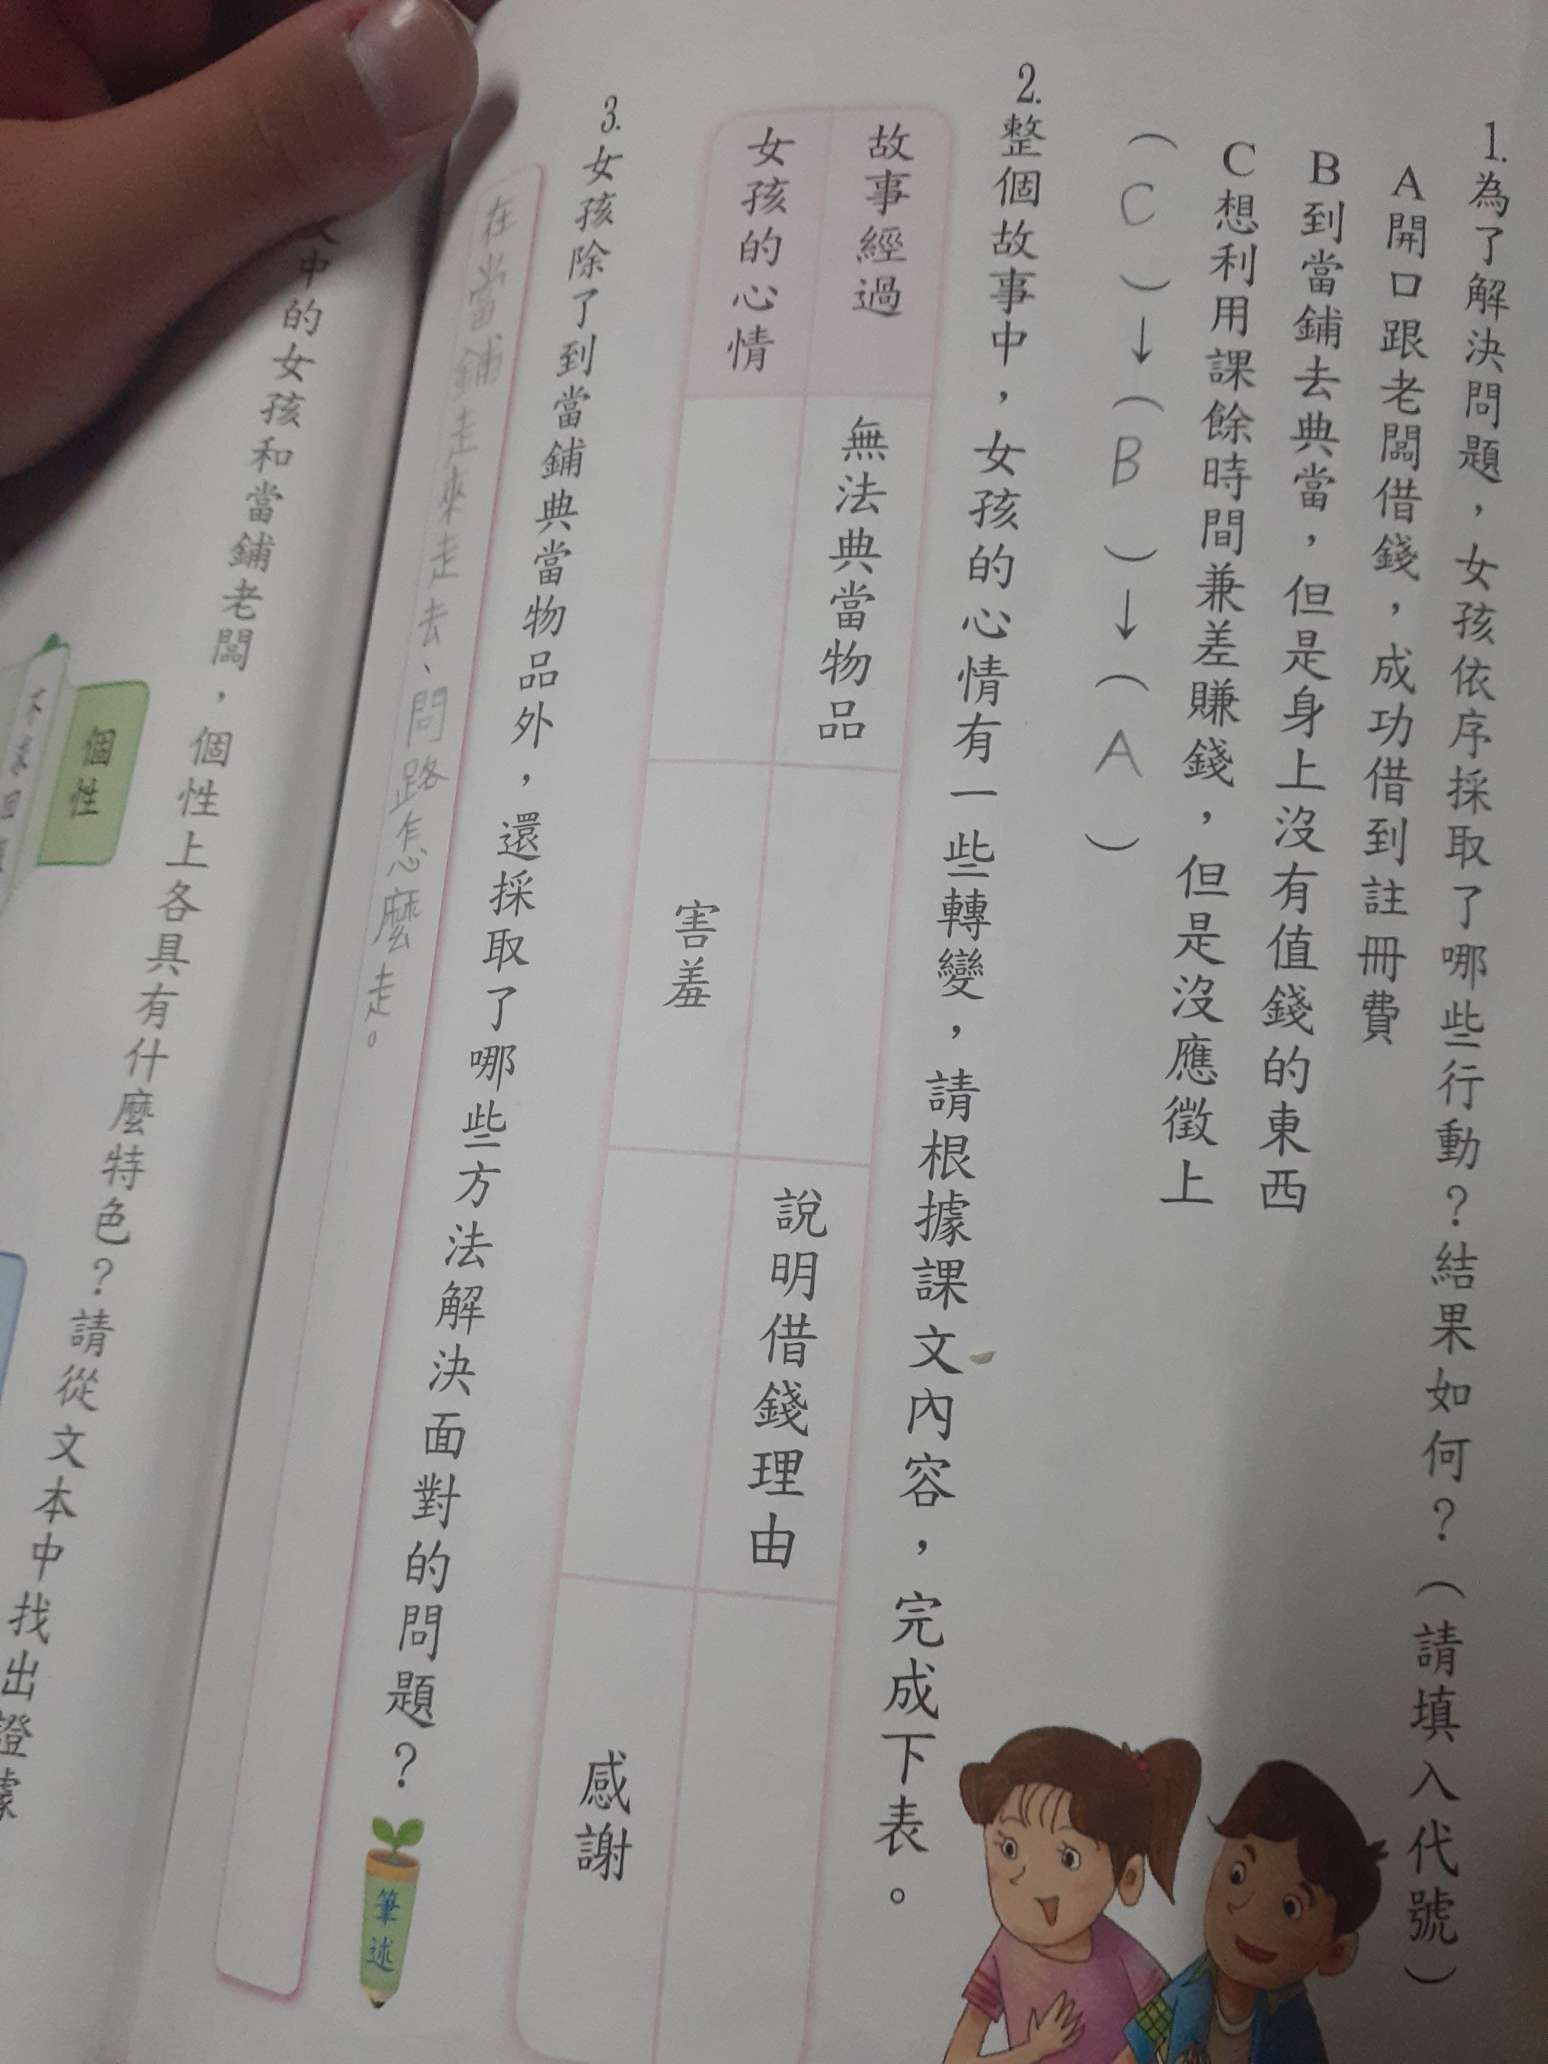 1.為了解決問題，女孩依序採取了哪些行動？結果如何？（請填入代號）
A開口跟老闆借錢，成功借到註冊費
B到當鋪去典當，但是身上沒有值錢的東西
C想利用課餘時間兼差賺錢，但是沒應徵上
（C）→（B）→（A）
2.整個故事中，女孩的心情有一些轉變，請根據課文內容，完成下表。
故事經過
無法典當物品
說明借錢理由
女孩的心情
害羞
感謝
3.女孩除了到當鋪典當物品外，還採取了哪些方法解決面對的問題？
筆述
在當鋪走來走去、問路怎麼走。
文中的女孩和當鋪老闆，個性上各具有什麼特色？請從文本中找出證據
個性
不求回